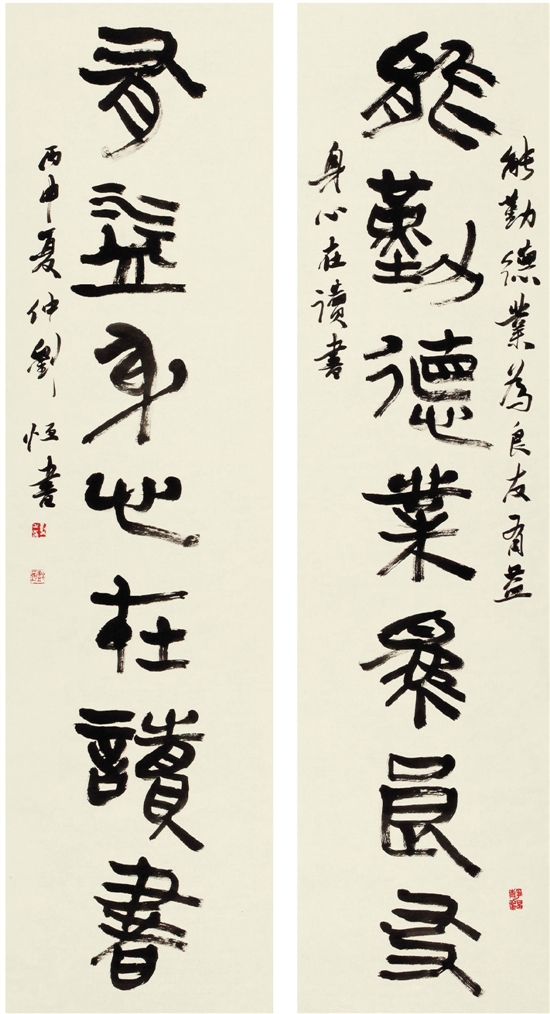 能勤德業為良友
有益身心在讀書
能勤德業為良友有益
身心在讀書
丙申夏仲劉恒書